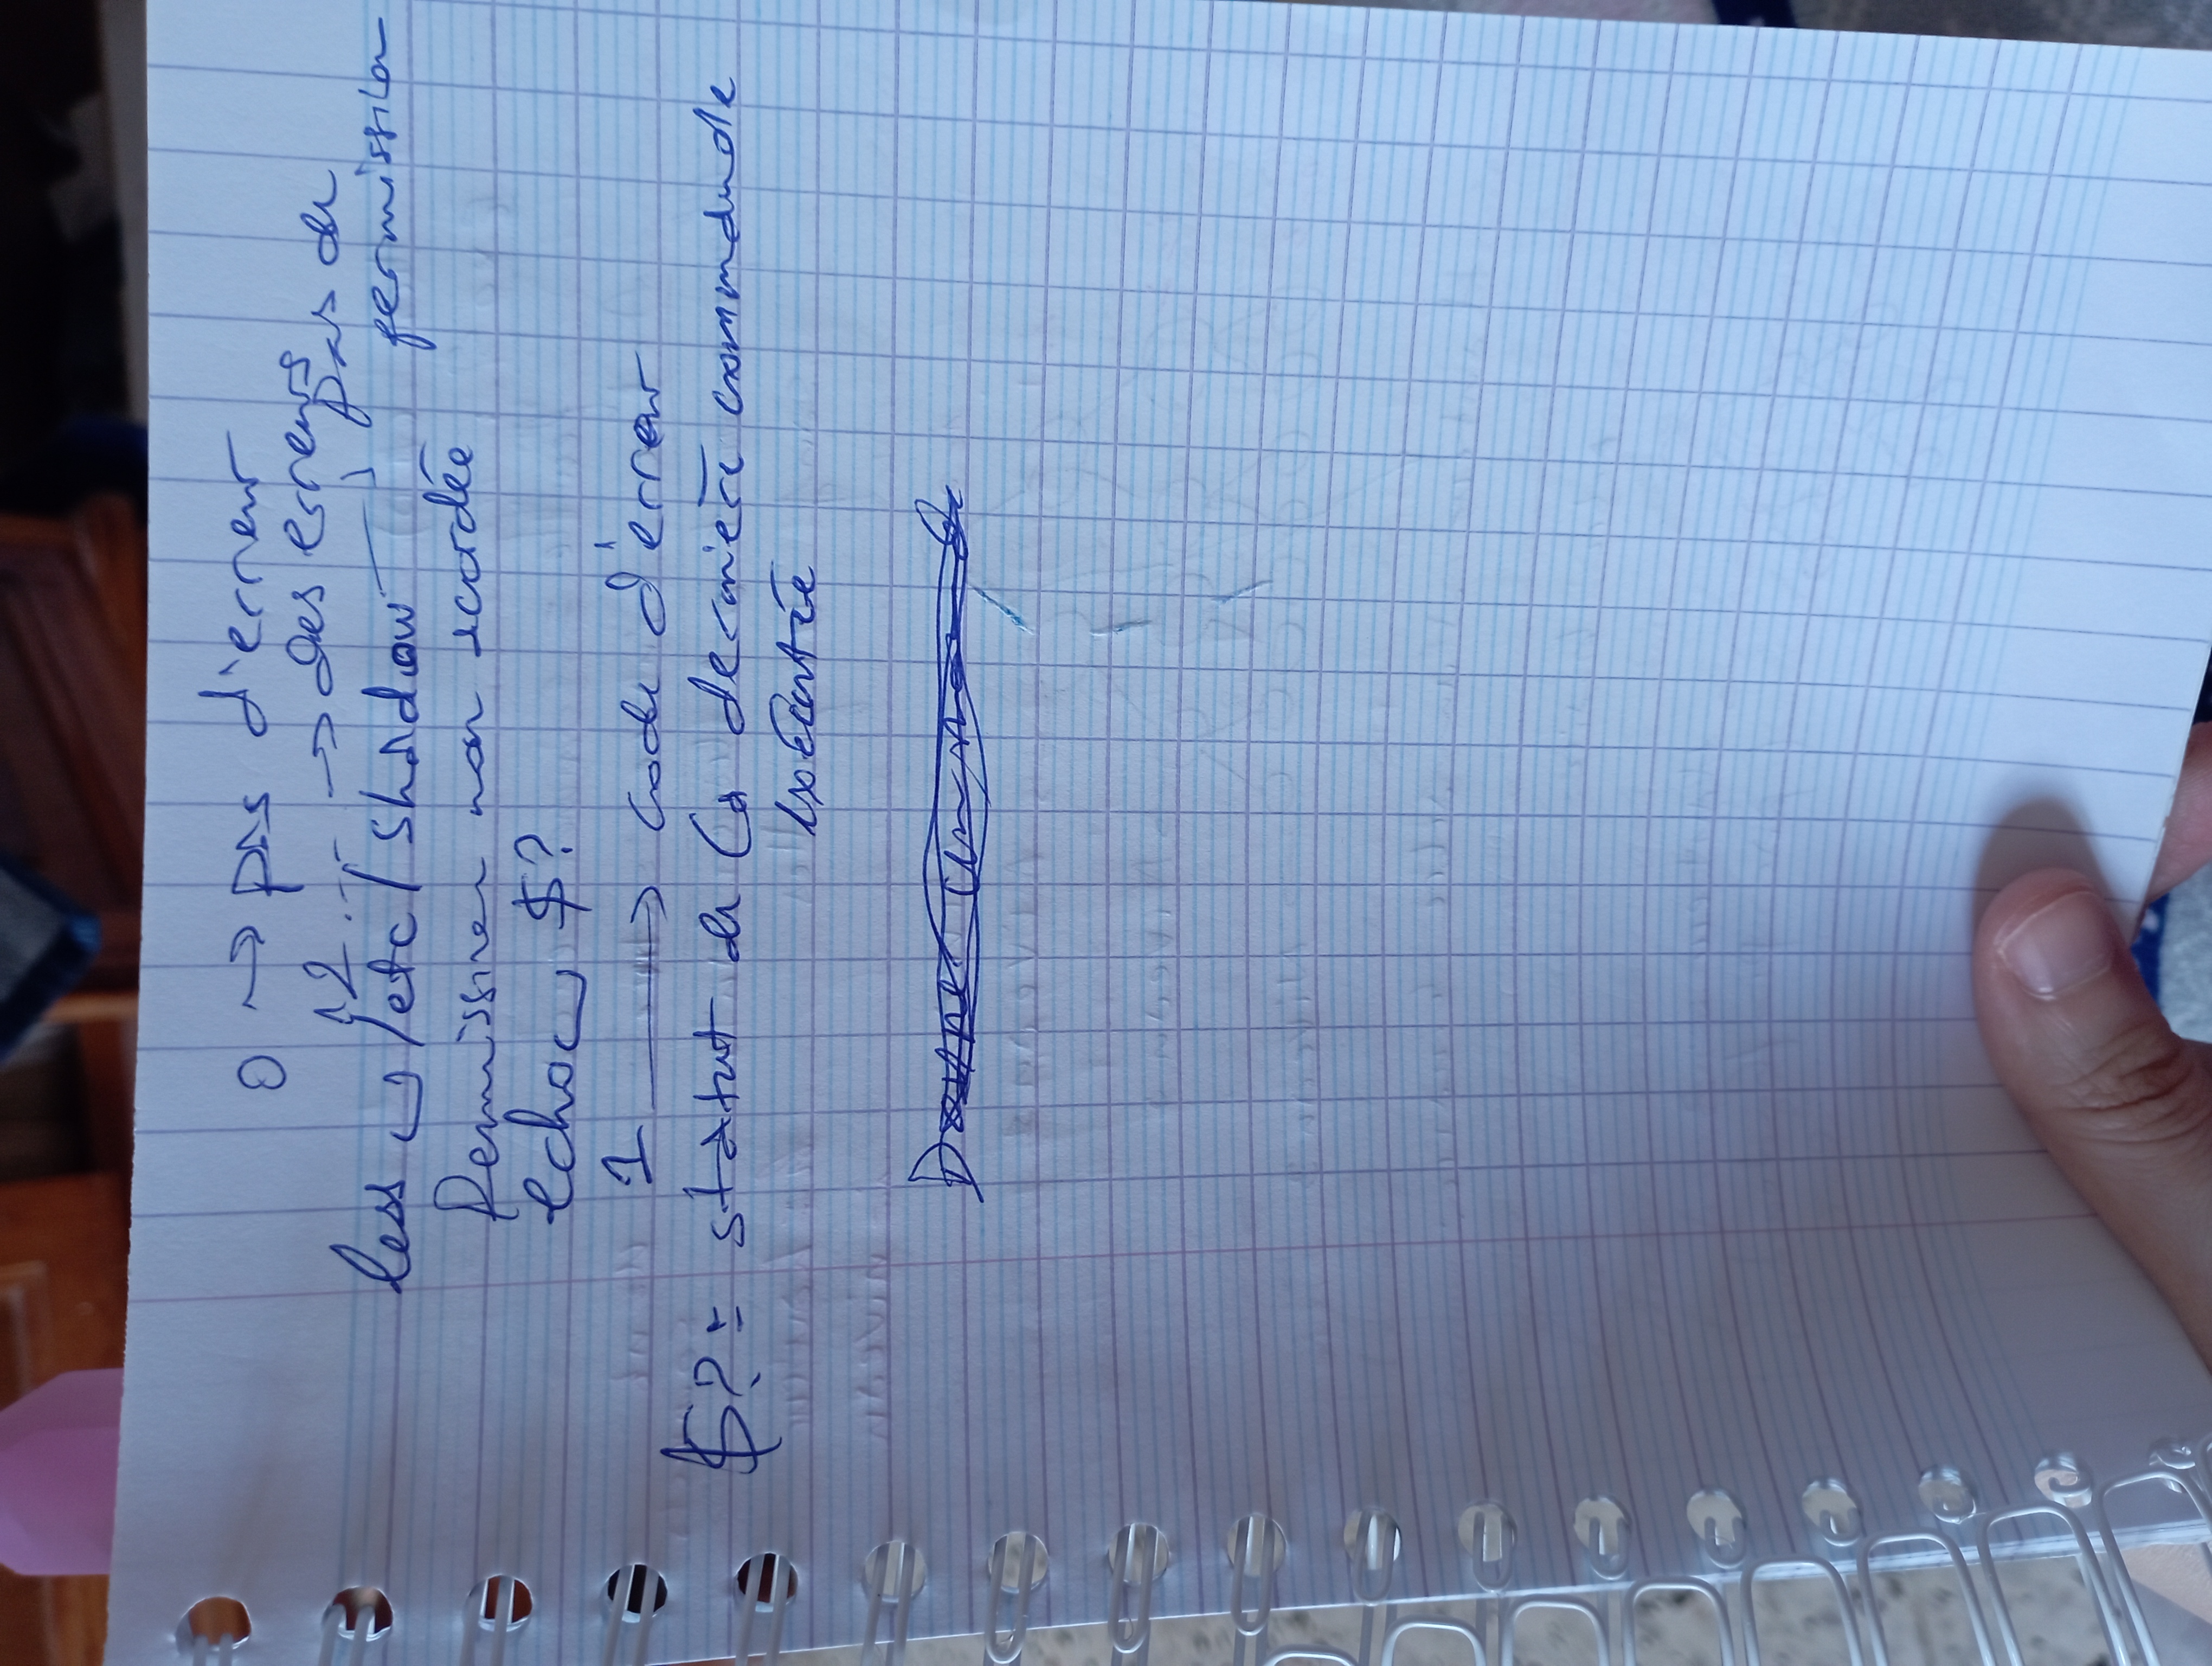 0 → pas d'erreur
12.... → des erreurs
less ⌴ /etc/shadow → pas de permission
Permission non accordée
echo ⌴ $?
1 → code d'erreur
$? = statut de la dernière commande
exécutée